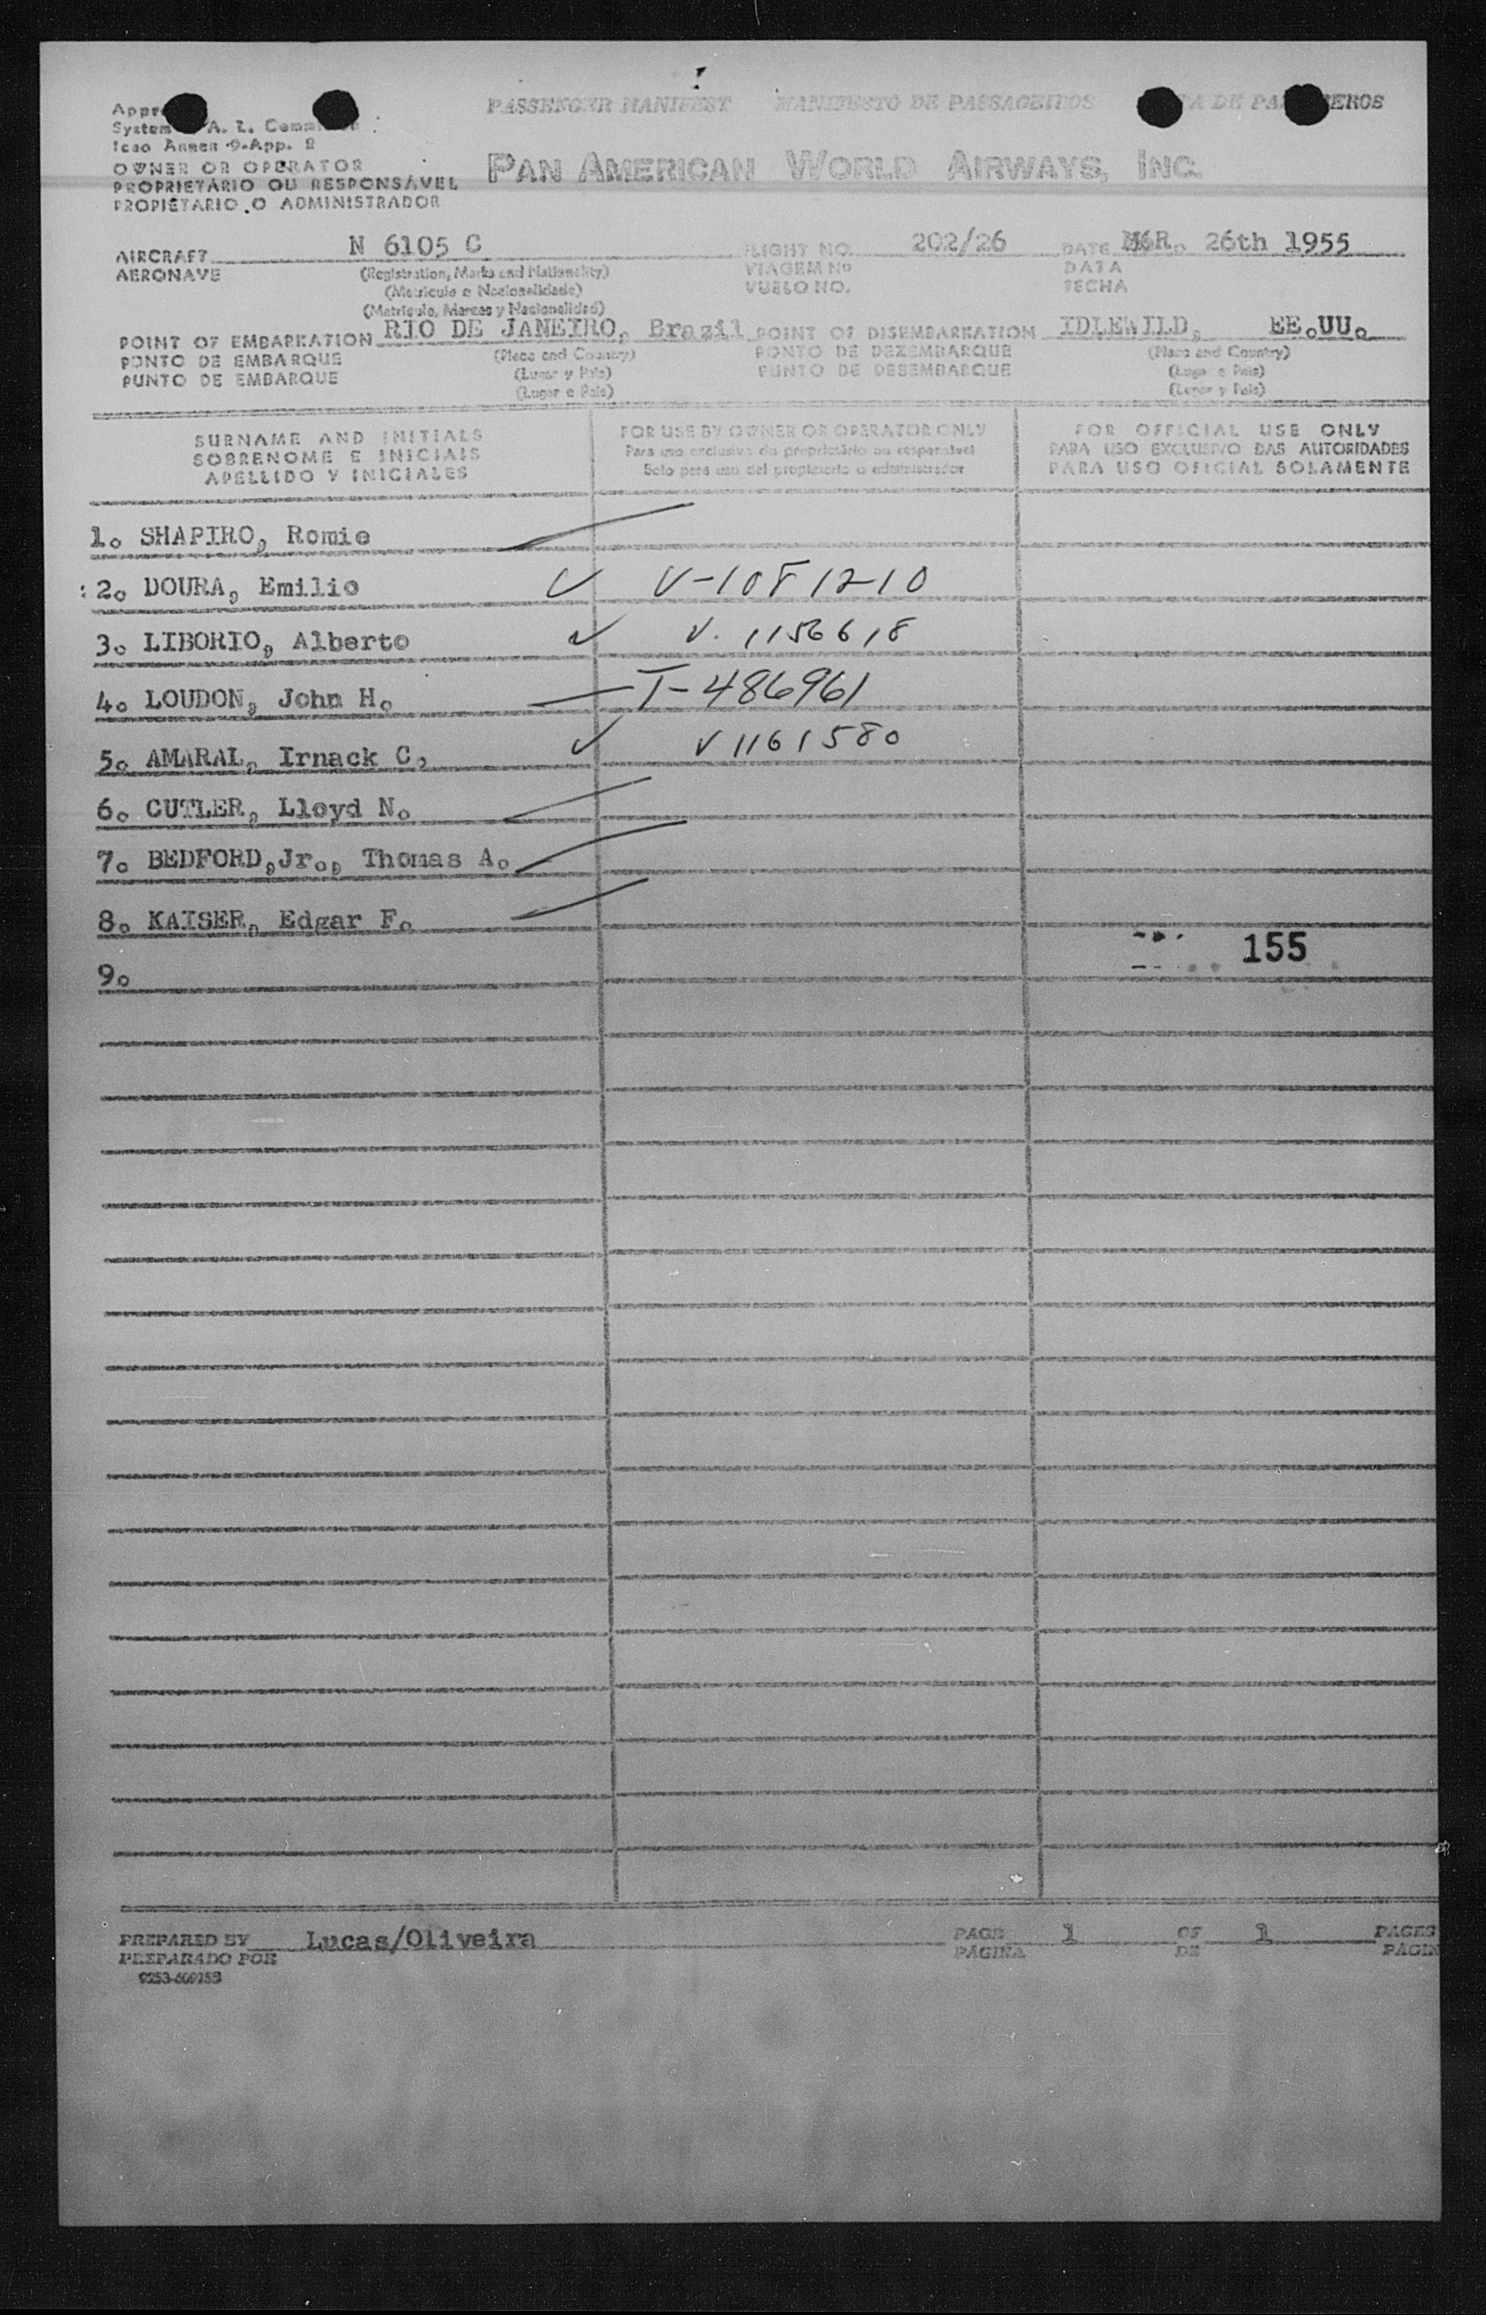 PASSENGER MANIFEST MANIFESTO DE PASSAGEIROS DE
System A. L.
Icao Annex 9-App. 2
OWNER OR OPERATOR
PROPRIETÁRIO OU RESPONSÁVEL
PROPIETARIO O ADMINISTRADOR
PAN AMERICAN WORLD AIRWAYS, INC.
AIRCRAFT N 6105 C FLIGHT NO. 202/26 DATE MAR. 26th 1955
AERONAVE (Registration, Marks and Nationality) VIAGEM Nº DATA
(Matricula e Nacionalidade) VUELO NO. FECHA
(Matricula, Marcas y Nacionalidad)
POINT OF EMBARKATION RIO DE JANEIRO, Brazil POINT OF DISEMBARKATION IDLEWILD, EE.UU.
PONTO DE EMBARQUE (Place and Country) PONTO DE DEZEMBARQUE (Place and Country)
PUNTO DE EMBARQUE (Lugar y Pais) PUNTO DE DESEMBARQUE (Lugar e Pais)
(Lugar e Pais) (Lugar y Pais)
SURNAME AND INITIALS FOR USE BY OWNER OR OPERATOR ONLY FOR OFFICIAL USE ONLY
SOBRENOME E INICIAIS Para uso exclusivo do proprietário ou responsável PARA USO EXCLUSIVO DAS AUTORIDADES
APELLIDO Y INICIALES Solo para uso del propietario o administrador PARA USO OFICIAL SOLAMENTE
1. SHAPIRO, Romie
2. DOURA, Emilio V-1081210
3. LIBORIO, Alberto V. 1156618
4. LOUDON, John H. I-486961
5. AMARAL, Irnack C, V1161580
6. CUTLER, Lloyd N.
7. BEDFORD,Jr., Thomas A.
8. KAISER, Edgar F.
155
9.
PREPARED BY Lucas/Oliveira PAGE 1 OF 1 PAGES
PREPARADO POR PÁGINA DE